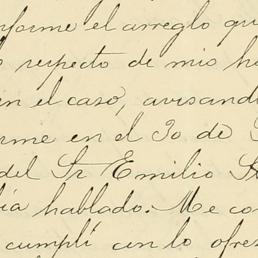 forme el arreglo qu
respecto de mis h
en el caso, avisand
rme en el 30 de
del Sr Emilio
ía hablado: Me co
cumplí con lo ofre